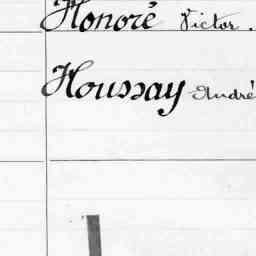 Honoré Victor.
Houssay André